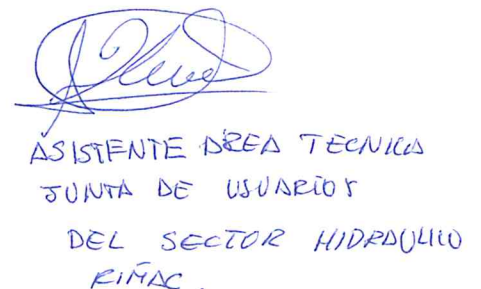 ASISTENTE AREA TECNICA
JUNTA DE USUARIOS
DEL SECTOR HIDRAULICO
RIMAC.